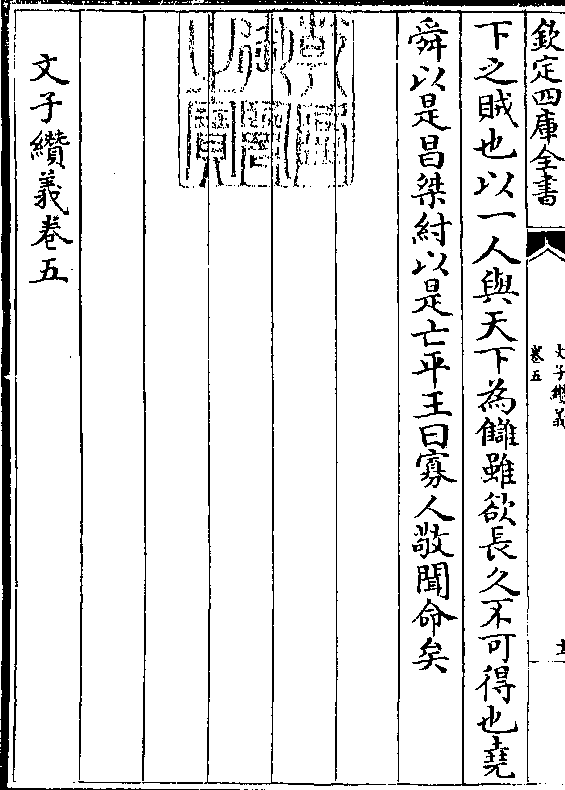 欽定四庫全書
文子纘義
卷五
下之賊也以一人與天下為讎雖欲長久不可得也堯
舜以是昌桀紂以是亡平王曰寡人敬聞命矣
文子纘義卷五